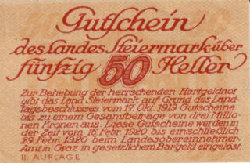 Gutschein
des Landes Steiermark über
fünfzig 50 Heller
Zur Behebung der herrschenden Hartgeldnot
gibt das Land Steiermark auf Grund des Land-
tagsbeschlusses vom 17. Okt. 1919 Gutscheine
bis zu einem Gesamtbetrage von drei Millio-
nen Kronen aus. Diese Gutscheine werden in
der Zeit vom 16. Febr. 1920 bis einschließlich
29. Febr. 1920 beim Landesobereinnehmer-
amt in Graz in gesetzlichem Bargeld eingelöst
II. AUFLAGE